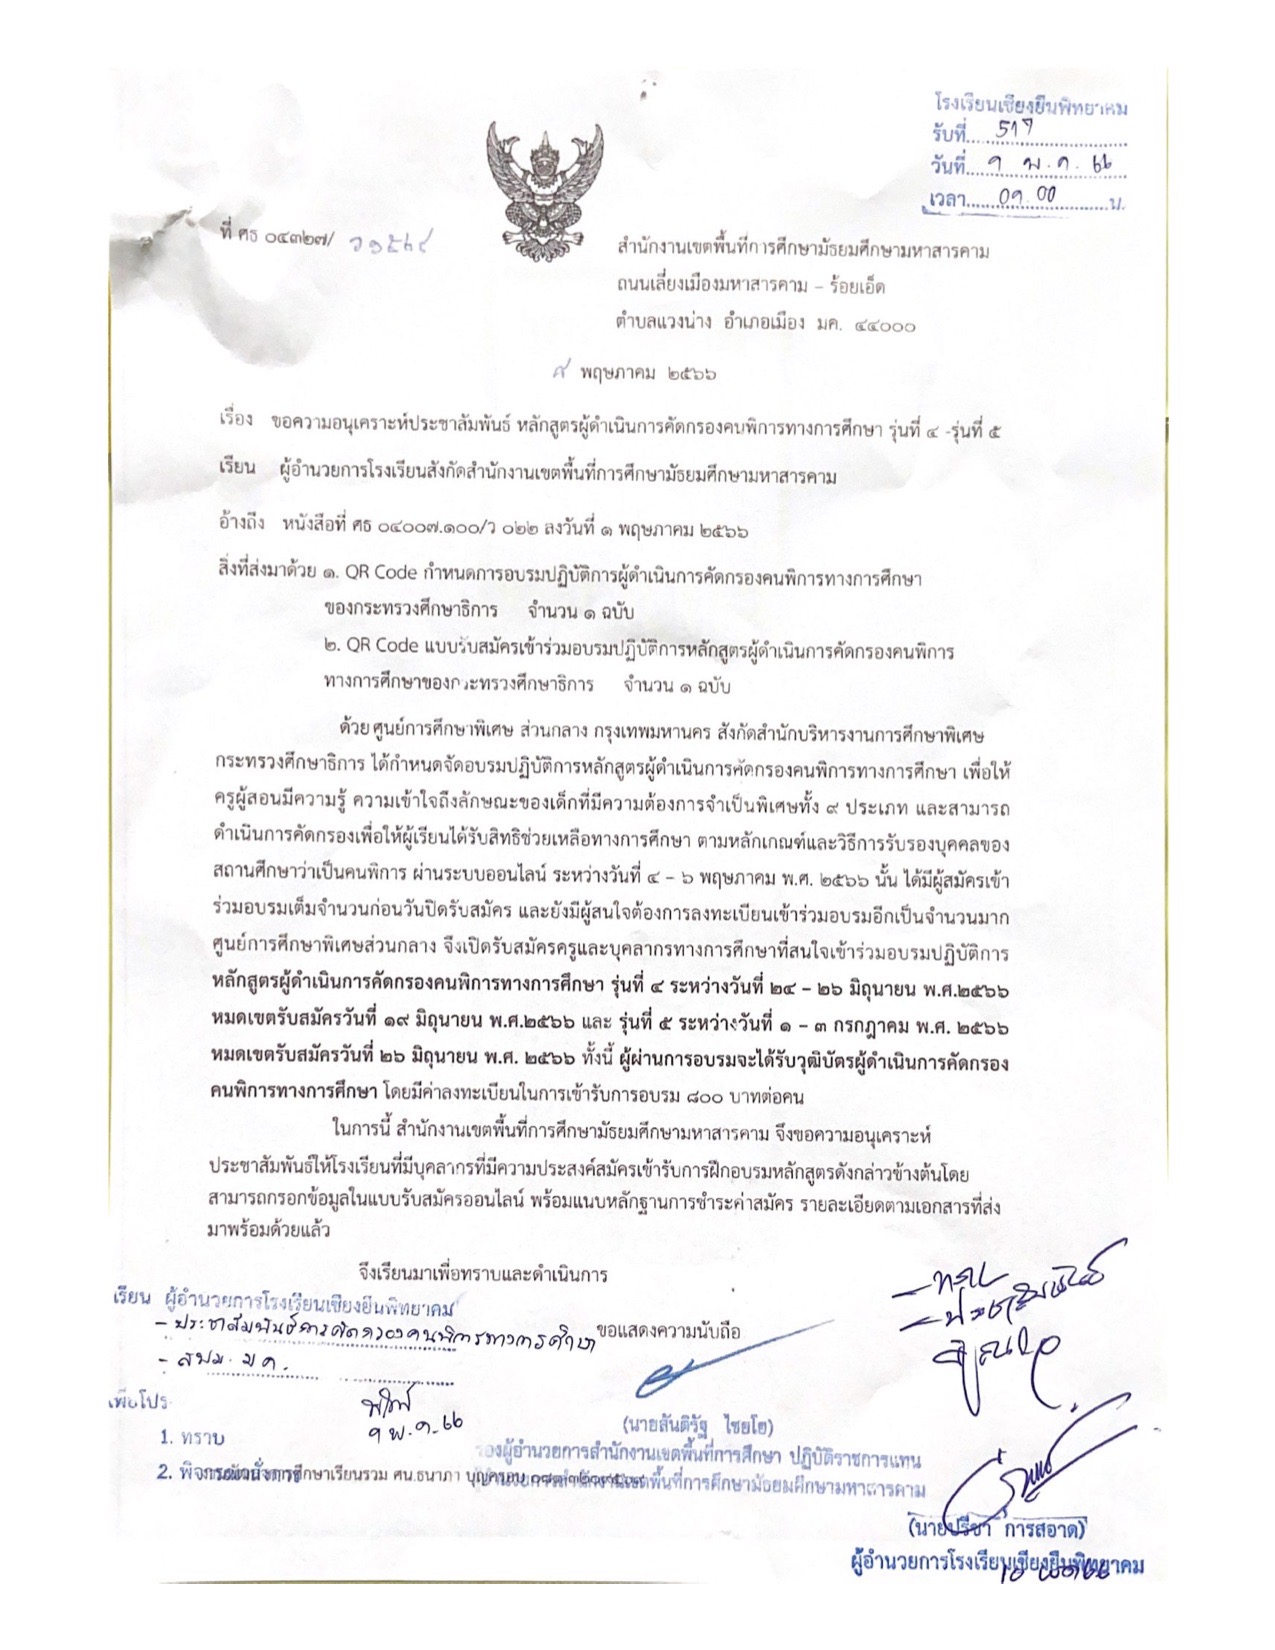 โรงเรียนเชียงยืนพิทยาคม
รับที่ 517
วันที่ ๑ พ.ค. ๖๖
เวลา 09.00 น.
ที่ ศธ ๐๔๓๒๗/ ว๑๕๖๙
สำนักงานเขตพื้นที่การศึกษามัธยมศึกษามหาสารคาม
ถนนเลี่ยงเมืองมหาสารคาม – ร้อยเอ็ด
ตำบลแวงน่าง อำเภอเมือง มค. ๔๔๐๐๐
๙ พฤษภาคม ๒๕๖๖
เรื่อง ขอความอนุเคราะห์ประชาสัมพันธ์ หลักสูตรผู้ดำเนินการคัดกรองคนพิการทางการศึกษา รุ่นที่ ๔ -รุ่นที่ ๕
เรียน ผู้อำนวยการโรงเรียนสังกัดสำนักงานเขตพื้นที่การศึกษามัธยมศึกษามหาสารคาม
อ้างถึง หนังสือที่ ศธ ๐๔๐๐๗.๑๐๐/ว ๐๒๒ ลงวันที่ ๑ พฤษภาคม ๒๕๖๖
สิ่งที่ส่งมาด้วย ๑. QR Code กำหนดการอบรมปฏิบัติการผู้ดำเนินการคัดกรองคนพิการทางการศึกษา
ของกระทรวงศึกษาธิการ จำนวน ๑ ฉบับ
๒. QR Code แบบรับสมัครเข้าร่วมอบรมปฏิบัติการหลักสูตรผู้ดำเนินการคัดกรองคนพิการ
ทางการศึกษาของกระทรวงศึกษาธิการ จำนวน ๑ ฉบับ
ด้วย ศูนย์การศึกษาพิเศษ ส่วนกลาง กรุงเทพมหานคร สังกัดสำนักบริหารงานการศึกษาพิเศษ
กระทรวงศึกษาธิการ ได้กำหนดจัดอบรมปฏิบัติการหลักสูตรผู้ดำเนินการคัดกรองคนพิการทางการศึกษา เพื่อให้
ครูผู้สอนมีความรู้ ความเข้าใจถึงลักษณะของเด็กที่มีความต้องการจำเป็นพิเศษทั้ง ๙ ประเภท และสามารถ
ดำเนินการคัดกรองเพื่อให้ผู้เรียนได้รับสิทธิช่วยเหลือทางการศึกษา ตามหลักเกณฑ์และวิธีการรับรองบุคคลของ
สถานศึกษาว่าเป็นคนพิการ ผ่านระบบออนไลน์ ระหว่างวันที่ ๔ – ๖ พฤษภาคม พ.ศ. ๒๕๖๖ นั้น ได้มีผู้สมัครเข้า
ร่วมอบรมเต็มจำนวนก่อนวันปิดรับสมัคร และยังมีผู้สนใจต้องการลงทะเบียนเข้าร่วมอบรมอีกเป็นจำนวนมาก
ศูนย์การศึกษาพิเศษส่วนกลาง จึงเปิดรับสมัครครูและบุคลากรทางการศึกษาที่สนใจเข้าร่วมอบรมปฏิบัติการ
หลักสูตรผู้ดำเนินการคัดกรองคนพิการทางการศึกษา รุ่นที่ ๔ ระหว่างวันที่ ๒๔ – ๒๖ มิถุนายน พ.ศ.๒๕๖๖
หมดเขตรับสมัครวันที่ ๑๙ มิถุนายน พ.ศ.๒๕๖๖ และ รุ่นที่ ๕ ระหว่างวันที่ ๑ – ๓ กรกฎาคม พ.ศ. ๒๕๖๖
หมดเขตรับสมัครวันที่ ๒๖ มิถุนายน พ.ศ. ๒๕๖๖ ทั้งนี้ ผู้ผ่านการอบรมจะได้รับวุฒิบัตรผู้ดำเนินการคัดกรอง
คนพิการทางการศึกษา โดยมีค่าลงทะเบียนในการเข้ารับการอบรม ๘๐๐ บาทต่อคน
ในการนี้ สำนักงานเขตพื้นที่การศึกษามัธยมศึกษามหาสารคาม จึงขอความอนุเคราะห์
ประชาสัมพันธ์ให้โรงเรียนที่มีบุคลากรที่มีความประสงค์สมัครเข้ารับการฝึกอบรมหลักสูตรดังกล่าวข้างต้นโดย
สามารถกรอกข้อมูลในแบบรับสมัครออนไลน์ พร้อมแนบหลักฐานการชำระค่าสมัคร รายละเอียดตามเอกสารที่ส่ง
มาพร้อมด้วยแล้ว
จึงเรียนมาเพื่อทราบและดำเนินการ
เรียน ผู้อำนวยการโรงเรียนเชียงยืนพิทยาคม
- ประชาสัมพันธ์การคัดกรองคนพิการทางการศึกษา
- สพม. มค.
ขอแสดงความนับถือ
- ทราบ
- ประชาสัมพันธ์
เพื่อโปร
๑ พ.ค. ๖๖
1. ทราบ
(นายสันติรัฐ ไชยโย)
รองผู้อำนวยการสำนักงานเขตพื้นที่การศึกษา ปฏิบัติราชการแทน
ผู้อำนวยการสำนักงานเขตพื้นที่การศึกษามัธยมศึกษามหาสารคาม
2. พิจารณาสั่งการ
(นายปรีชา การสอาด)
ผู้อำนวยการโรงเรียนเชียงยืนพิทยาคม